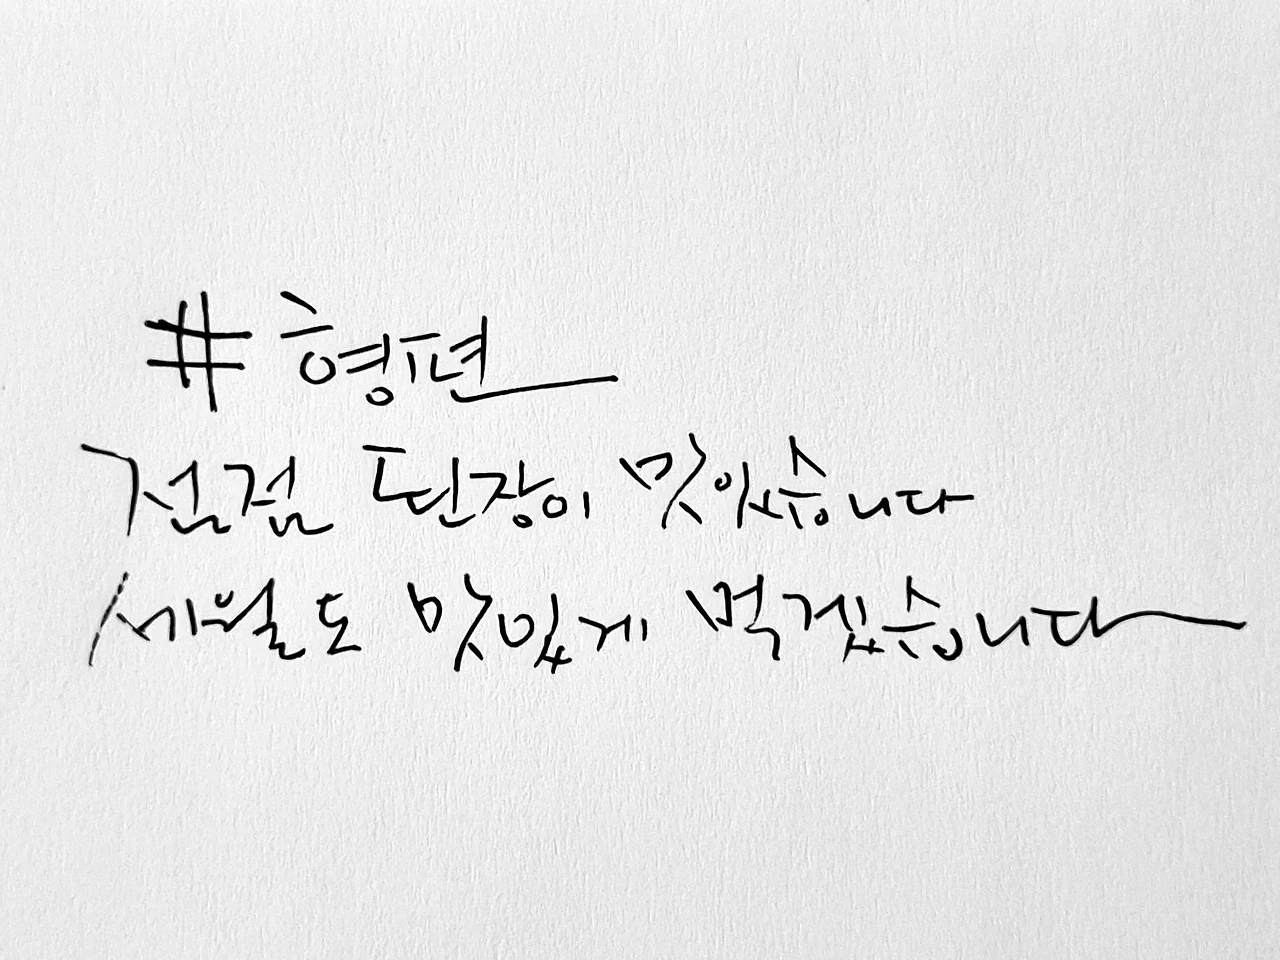 #형편
점점 된장이 맛있습니다
세월도 맛있게 먹겠습니다